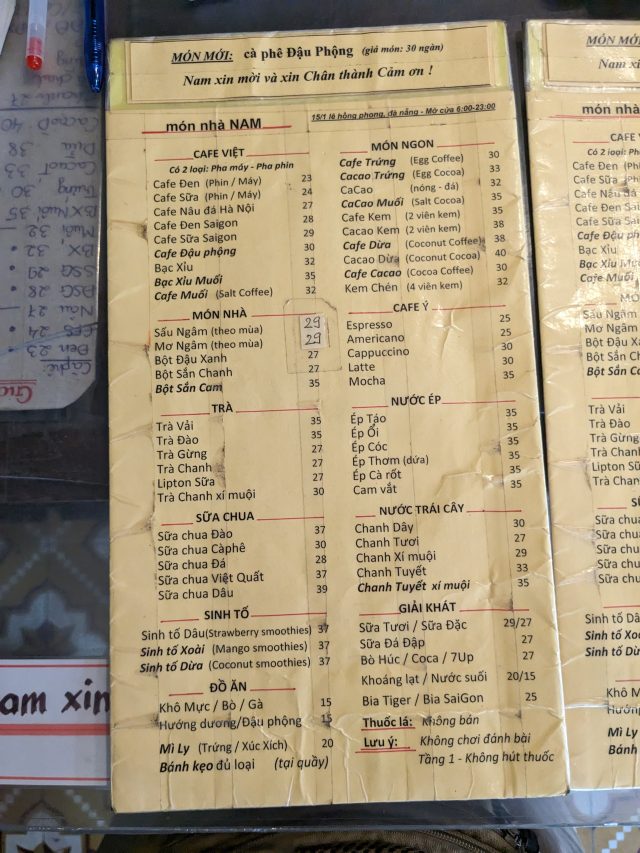 MÓN MỚI: cà phê Đậu Phộng (giá món: 30 ngàn)
Nam xin mời và xin Chân thành Cảm ơn !
15/1 lê hồng phong, đà nẵng - Mở cửa 6:00-23:00
món nhà NAM
CAFE VIỆT
Có 2 loại: Pha máy - Pha phin
Cafe Đen (Phin / Máy) 23
Cafe Sữa (Phin / Máy) 24
Cafe Nâu đá Hà Nội 27
Cafe Đen Saigon 28
Cafe Sữa Saigon 29
Cafe Đậu phộng 30
Bạc Xỉu 32
Bạc Xỉu Muối 35
Cafe Muối (Salt Coffee) 32
MÓN NHÀ
Sấu Ngâm (theo mùa) 29
Mơ Ngâm (theo mùa) 29
Bột Đậu Xanh 27
Bột Sắn Chanh 27
Bột Sắn Cam 35
TRÀ
Trà Vải 35
Trà Đào 35
Trà Gừng 27
Trà Chanh 27
Lipton Sữa 27
Trà Chanh xí muội 30
SỮA CHUA
Sữa chua Đào 37
Sữa chua Càphê 30
Sữa chua Đá 28
Sữa chua Việt Quất 37
Sữa chua Dâu 39
SINH TỐ
Sinh tố Dâu(Strawberry smoothies) 37
Sinh tố Xoài (Mango smoothies) 37
Sinh tố Dừa (Coconut smoothies) 37
ĐỒ ĂN
Khô Mực / Bò / Gà 15
Hướng dương/Đậu phộng 15
Mì Ly (Trứng / Xúc Xích) 20
Bánh kẹo đủ loại (tại quầy)
MÓN NGON
Cafe Trứng (Egg Coffee) 30
Cacao Trứng (Egg Cocoa) 33
CaCao (nóng - đá) 32
CaCao Muối (Salt Cocoa) 35
Cafe Kem (2 viên kem) 35
Cacao Kem (2 viên kem) 38
Cafe Dừa (Coconut Coffee) 38
Cacao Dừa (Coconut Cocoa) 40
Cafe Cacao (Cocoa Coffee) 30
Kem Chén (4 viên kem) 32
CAFE Ý
Espresso 25
Americano 25
Cappuccino 30
Latte 30
Mocha 35
NƯỚC ÉP
Ép Táo 35
Ép Ổi 35
Ép Cóc 35
Ép Thơm (dứa) 35
Ép Cà rốt 35
Cam vắt 35
NƯỚC TRÁI CÂY
Chanh Dây 30
Chanh Tươi 27
Chanh Xí muội 29
Chanh Tuyết 33
Chanh Tuyết xí muội 35
GIẢI KHÁT
Sữa Tươi / Sữa Đặc 29/27
Sữa Đá Đập 27
Bò Húc / Coca / 7Up 27
Khoáng lạt / Nước suối 20/15
Bia Tiger / Bia SaiGon 25
Thuốc lá: Không bán
Lưu ý: Không chơi đánh bài
Tầng 1 - Không hút thuốc
am xin
MÓN MỚI
Nam xi
món nhà
CAFE
Có 2 loại:
Cafe Đen (P
Cafe Sữa (P
Cafe Nâu đá
Cafe Đen Sai
Cafe Sữa Sai
Cafe Đậu phộ
Bạc Xỉu
Bạc Xỉu Muối
Cafe Muối
Sấu Ngâm
Mơ Ngâm
Bột Đậu Xanh
Bột Sắn Chanh
Bột Sắn Cam
Trà Vải
Trà Đào
Trà Gừng
Trà Chanh
Lipton Sữa
Trà Chanh
Sữa chu
Sữa chu
Sữa chu
Sữa chu
Sinh tố Dâ
Sinh tố Xoà
Sinh tố Dừ
Khô Mự
Mì Ly
Bánh